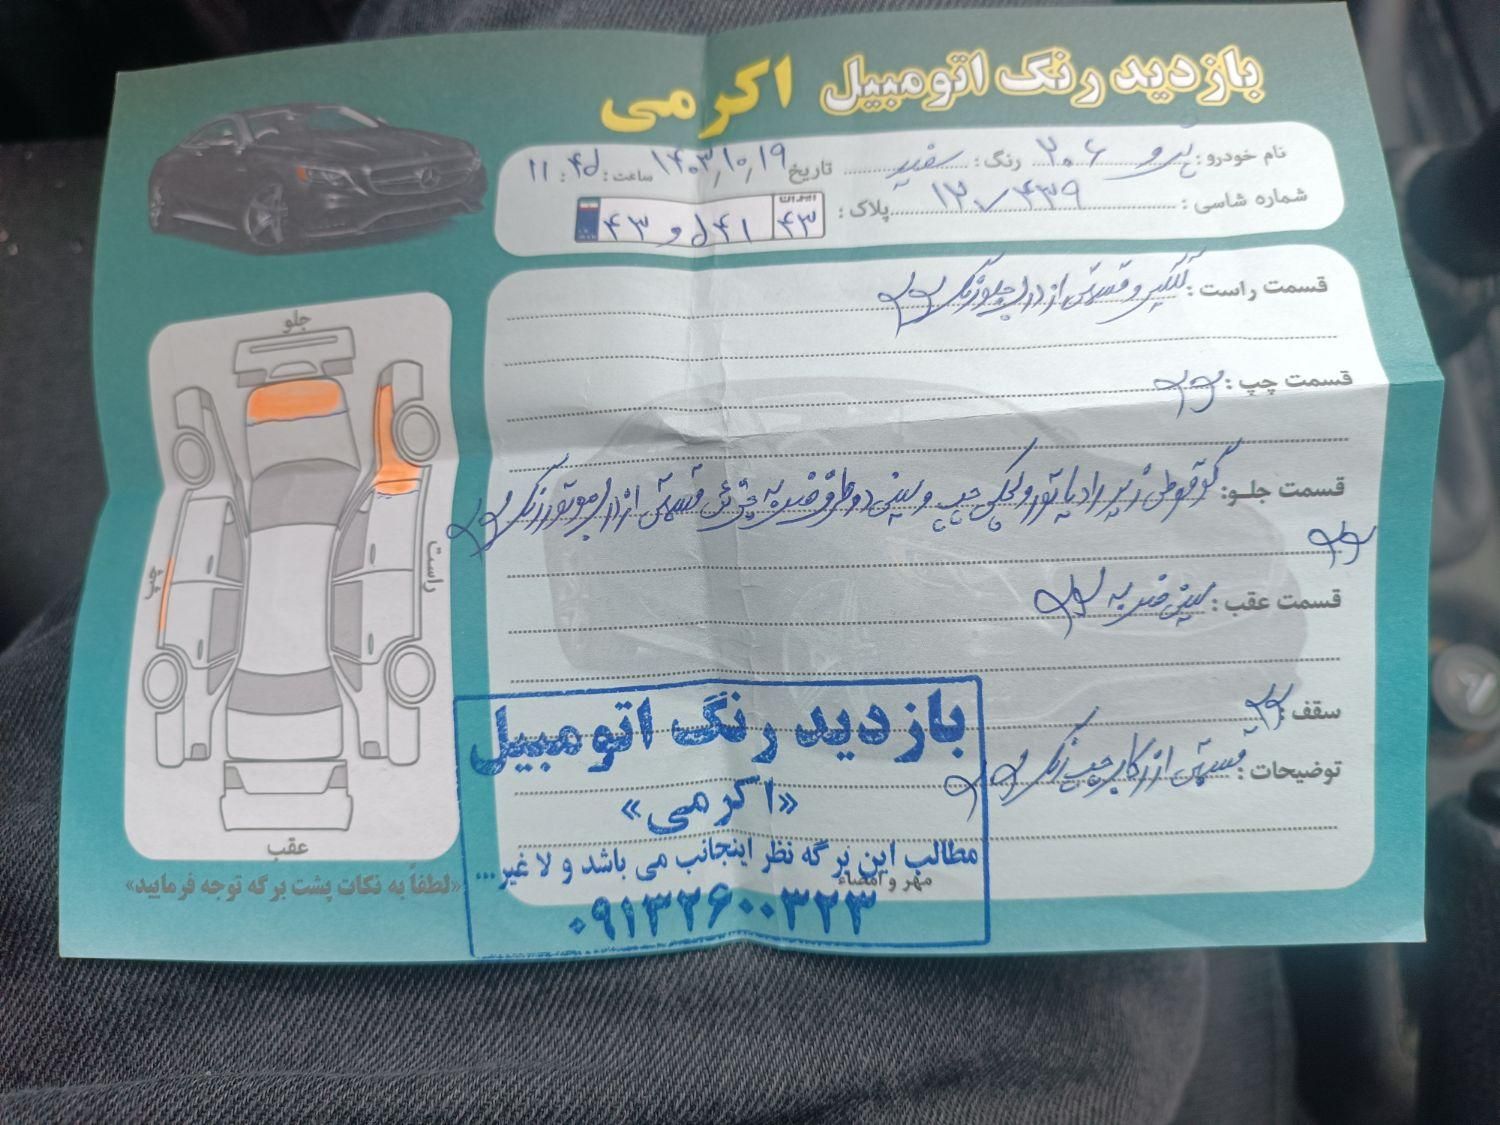 بازدید رنگ اتومبیل اکرمی
نام خودرو: پژو ۲۰۶ رنگ: سفید تاریخ ۱۴۰۳,۱۰,۱۹ ساعت: ۱۱:۴۵
شماره شاسی: پلاک: ۴۳ و ۴۱ ایران ۴۳
قسمت راست: گلگیر و قسمتی از درب جلو رنگ
قسمت چپ:
قسمت جلو: زیر رادیاتور و لچکی چپ و سینی دو طرف ضربه جزئی قسمتی از درب موتور رنگ
قسمت عقب: سینی ضربه
سقف:
توضیحات: قسمتی از رکاب چپ رنگ
مهر و امضاء
جلو
راست
چپ
عقب
«لطفاً به نکات پشت برگه توجه فرمایید»
بازدید رنگ اتومبیل
«اکرمی»
مطالب این برگه نظر اینجانب می باشد و لا غیر...
۰۹۱۳۲۶۰۰۳۲۳